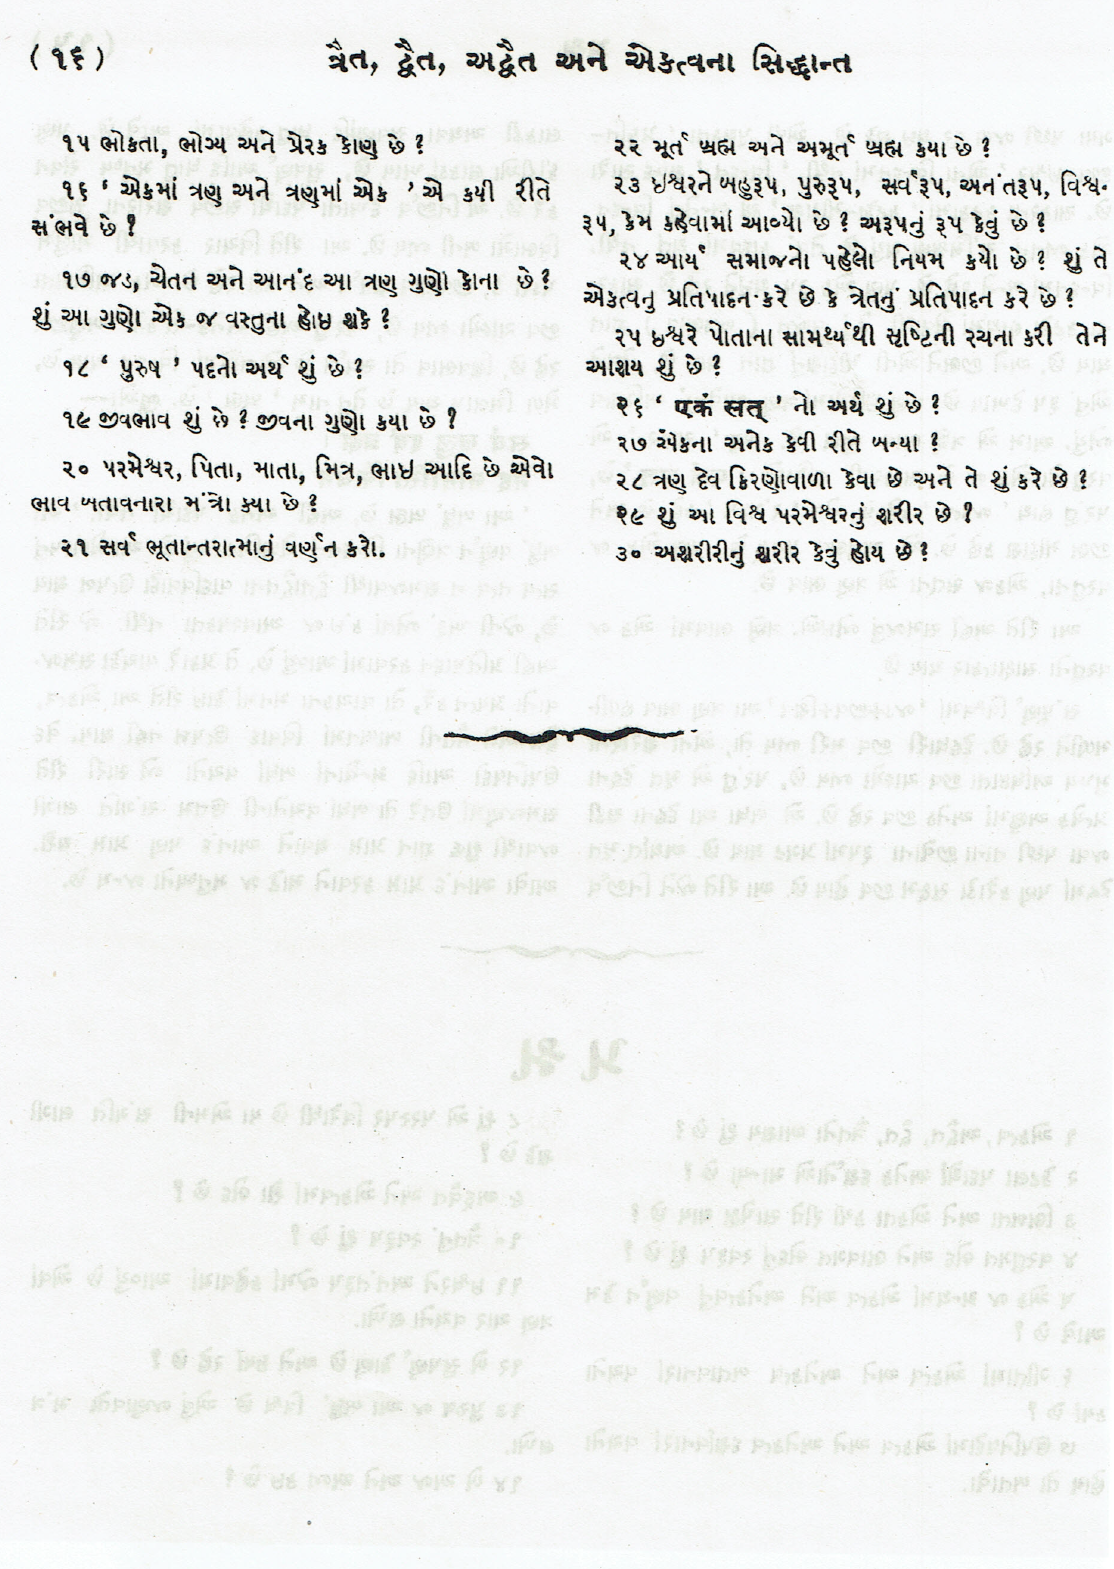 (૧૬)
ત્રૈત, દ્વૈત, અદ્વૈત અને એકત્વના સિદ્ધાન્ત
૧૫ ભોકતા, ભોગ્ય અને પ્રેરક કોણ છે ?
૧૬ ‘ એકમાં ત્રણ અને ત્રણમાં એક ’ એ કયી રીતે
સંભવે છે ?
૧૭ જડ, ચેતન અને આનંદ આ ત્રણ ગુણો કોના છે ?
શું આ ગુણો એક જ વસ્તુના હોઇ શકે ?
૧૮ ‘ પુરુષ ’ પદનો અર્થ શું છે ?
૧૯ જીવભાવ શું છે ? જીવના ગુણો કયા છે ?
૨૦ પરમેશ્વર, પિતા, માતા, મિત્ર, ભાઇ આદિ છે એવો
ભાવ બતાવનારા મંત્રો ક્યા છે ?
૨૧ સર્વ ભૂતાન્તરાત્માનું વર્ણન કરો.
૨૨ મૂર્ત બ્રહ્મ અને અમૂર્ત બ્રહ્મ કયા છે ?
૨૩ ઇશ્વરને બહુરૂપ, પુરુરૂપ, સર્વરૂપ, અનંતરૂપ, વિશ્વ-
રૂપ, કેમ કહેવામાં આવ્યો છે ? અરૂપનું રૂપ કેવું છે ?
૨૪ આર્ય સમાજનો પહેલો નિયમ કયો છે ? શું તે
એકત્વનુ પ્રતિપાદન કરે છે કે ત્રૈતનું પ્રતિપાદન કરે છે ?
૨૫ ઇશ્વરે પોતાના સામર્થ્યથી સૃષ્ટિની રચના કરી તેનો
આશય શું છે ?
૨૬ ‘ एकं सत् ’ નો અર્થ શું છે ?
૨૭ એકના અનેક કેવી રીતે બન્યા ?
૨૮ ત્રણ દેવ કિરણોવાળા કેવા છે અને તે શું કરે છે ?
૨૯ શું આ વિશ્વ પરમેશ્વરનું શરીર છે ?
૩૦ અશરીરીનું શરીર કેવું હોય છે ?